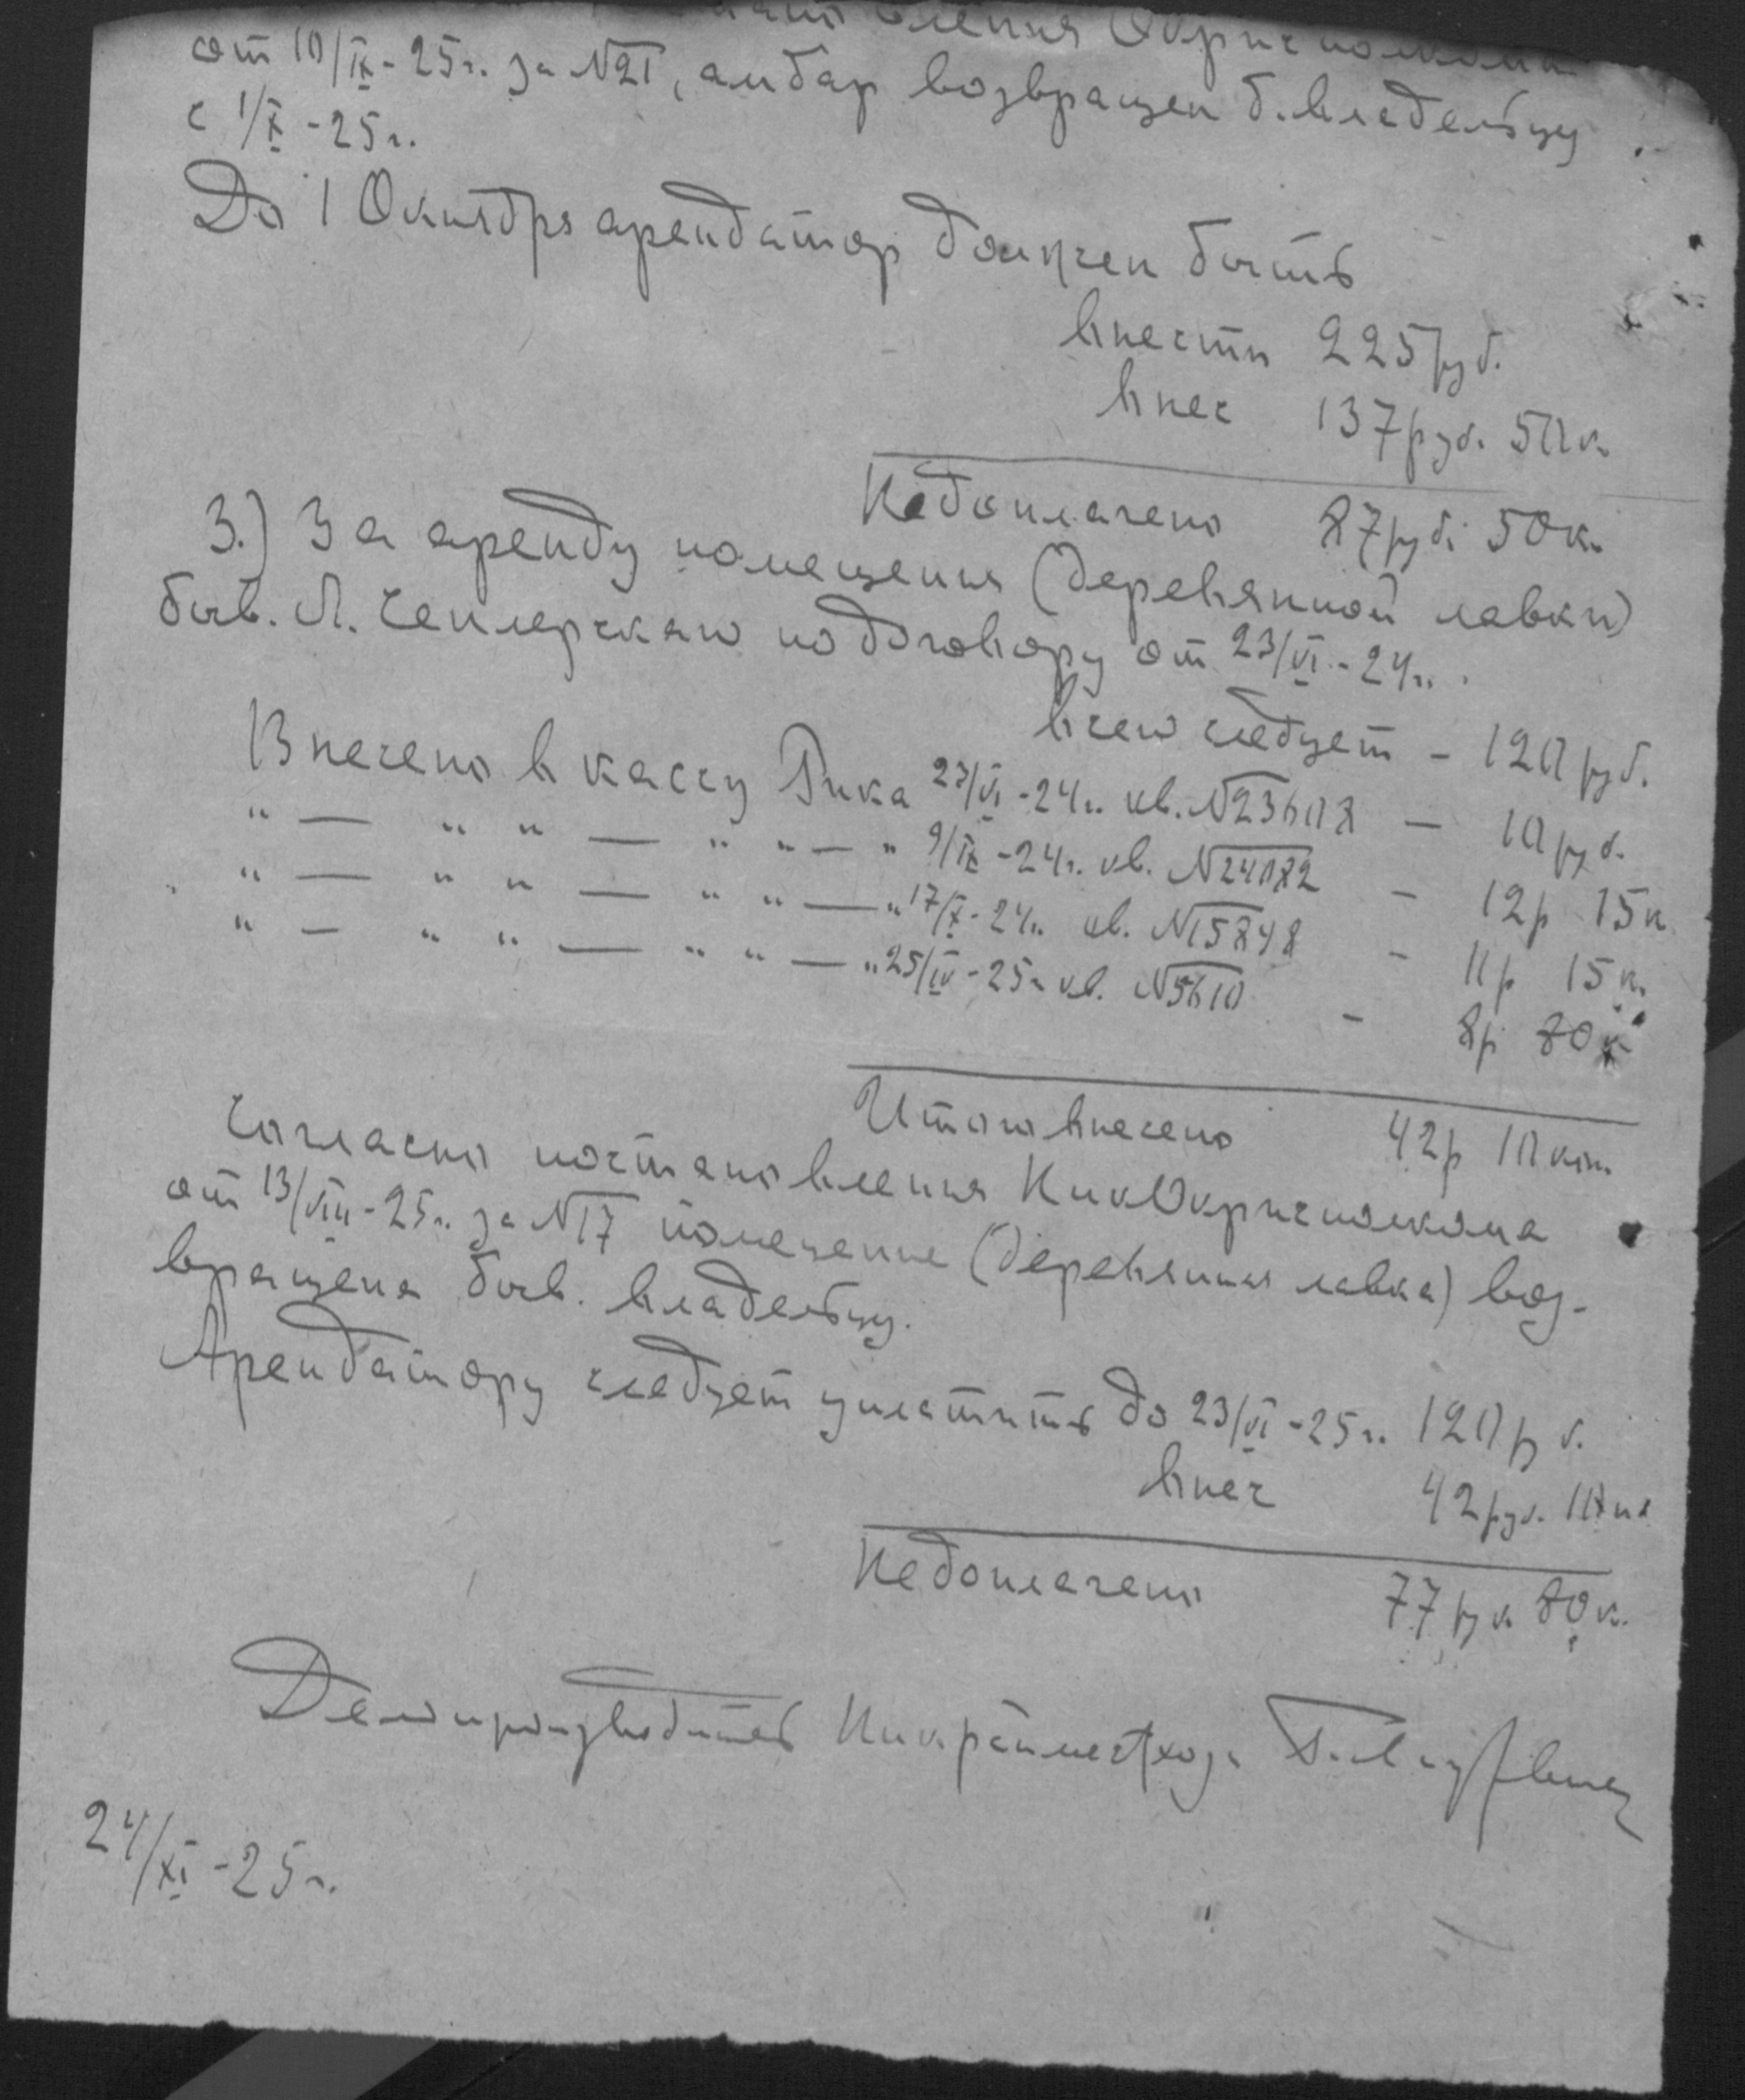 Окрисполкома
от 10/IX-25г. за №21, амбар возвращен б. владельцу
с 1/X-25г.
До 1 Октября арендатор должен быть
внести 225 руб.
внес 137 руб. 50 к.
Недоплачено 87 руб. 50 к.
3.) За аренду помещения (деревянной лавки)
быв. Л. по договору от 23/VI-24г.
всего следует - 120 руб.
Внесено в кассу Рика 27/VI-24г. кв. №23608 — 10 руб.
" — " " — " " — " 9/IX-24г. кв. №24082 - 12 р 15 к
" — " " — " " — " 17/X-24г. кв. №15848 - 11 р 15 к.
" — " " — " " — " 25/IV-25г кв. №5610 - 8 р 80 к
Итого внесено 42 р 10 коп.
Согласно постановления НикОкрисполкома
от 13/VIII-25г. за №17 помещение (деревянная лавка) воз-
вращена быв. владельцу.
Арендатору следует уплатить до 23/VI-25г. 120 руб.
внес 42 руб. 10 к
Недоплачено 77 руб. 80 к.
Делопроизводитель Никрайместхоза
24/XI-25г.